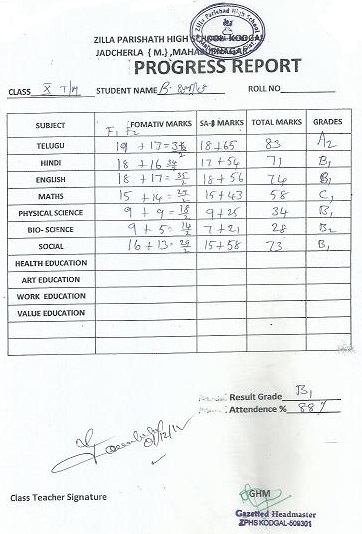 Zilla Parishad High School
ZILLA PARISHATH HIGH SCHOOL KODGAL
JADCHERLA ( M.) ,MAHABUBNAGAR
PROGRESS REPORT
CLASS X T/M STUDENT NAME B. ROLL NO
SUBJECT FOMATIV MARKS SA-I MARKS TOTAL MARKS GRADES
F1 F2
TELUGU 19 + 17 = 36/2 18+65 83 A2
HINDI 18 + 16 34/2 17 + 54 71 B1
ENGLISH 18 + 17 = 35/2 18 + 56 74 B1
MATHS 15 + 14 = 29/2 15 + 43 58 C1
PHYSICAL SCIENCE 9 + 9 = 18/2 9 + 25 34 B1
BIO- SCIENCE 9 + 5 = 14/2 7 + 21 28 B2
SOCIAL 16 + 13 = 29/2 15 + 58 73 B1
HEALTH EDUCATION
ART EDUCATION
WORK EDUCATION
VALUE EDUCATION
Result Grade B1
Attendence % 88%
Class Teacher Signature
GHM
Gazetted Headmaster
ZPHS KODGAL-509301